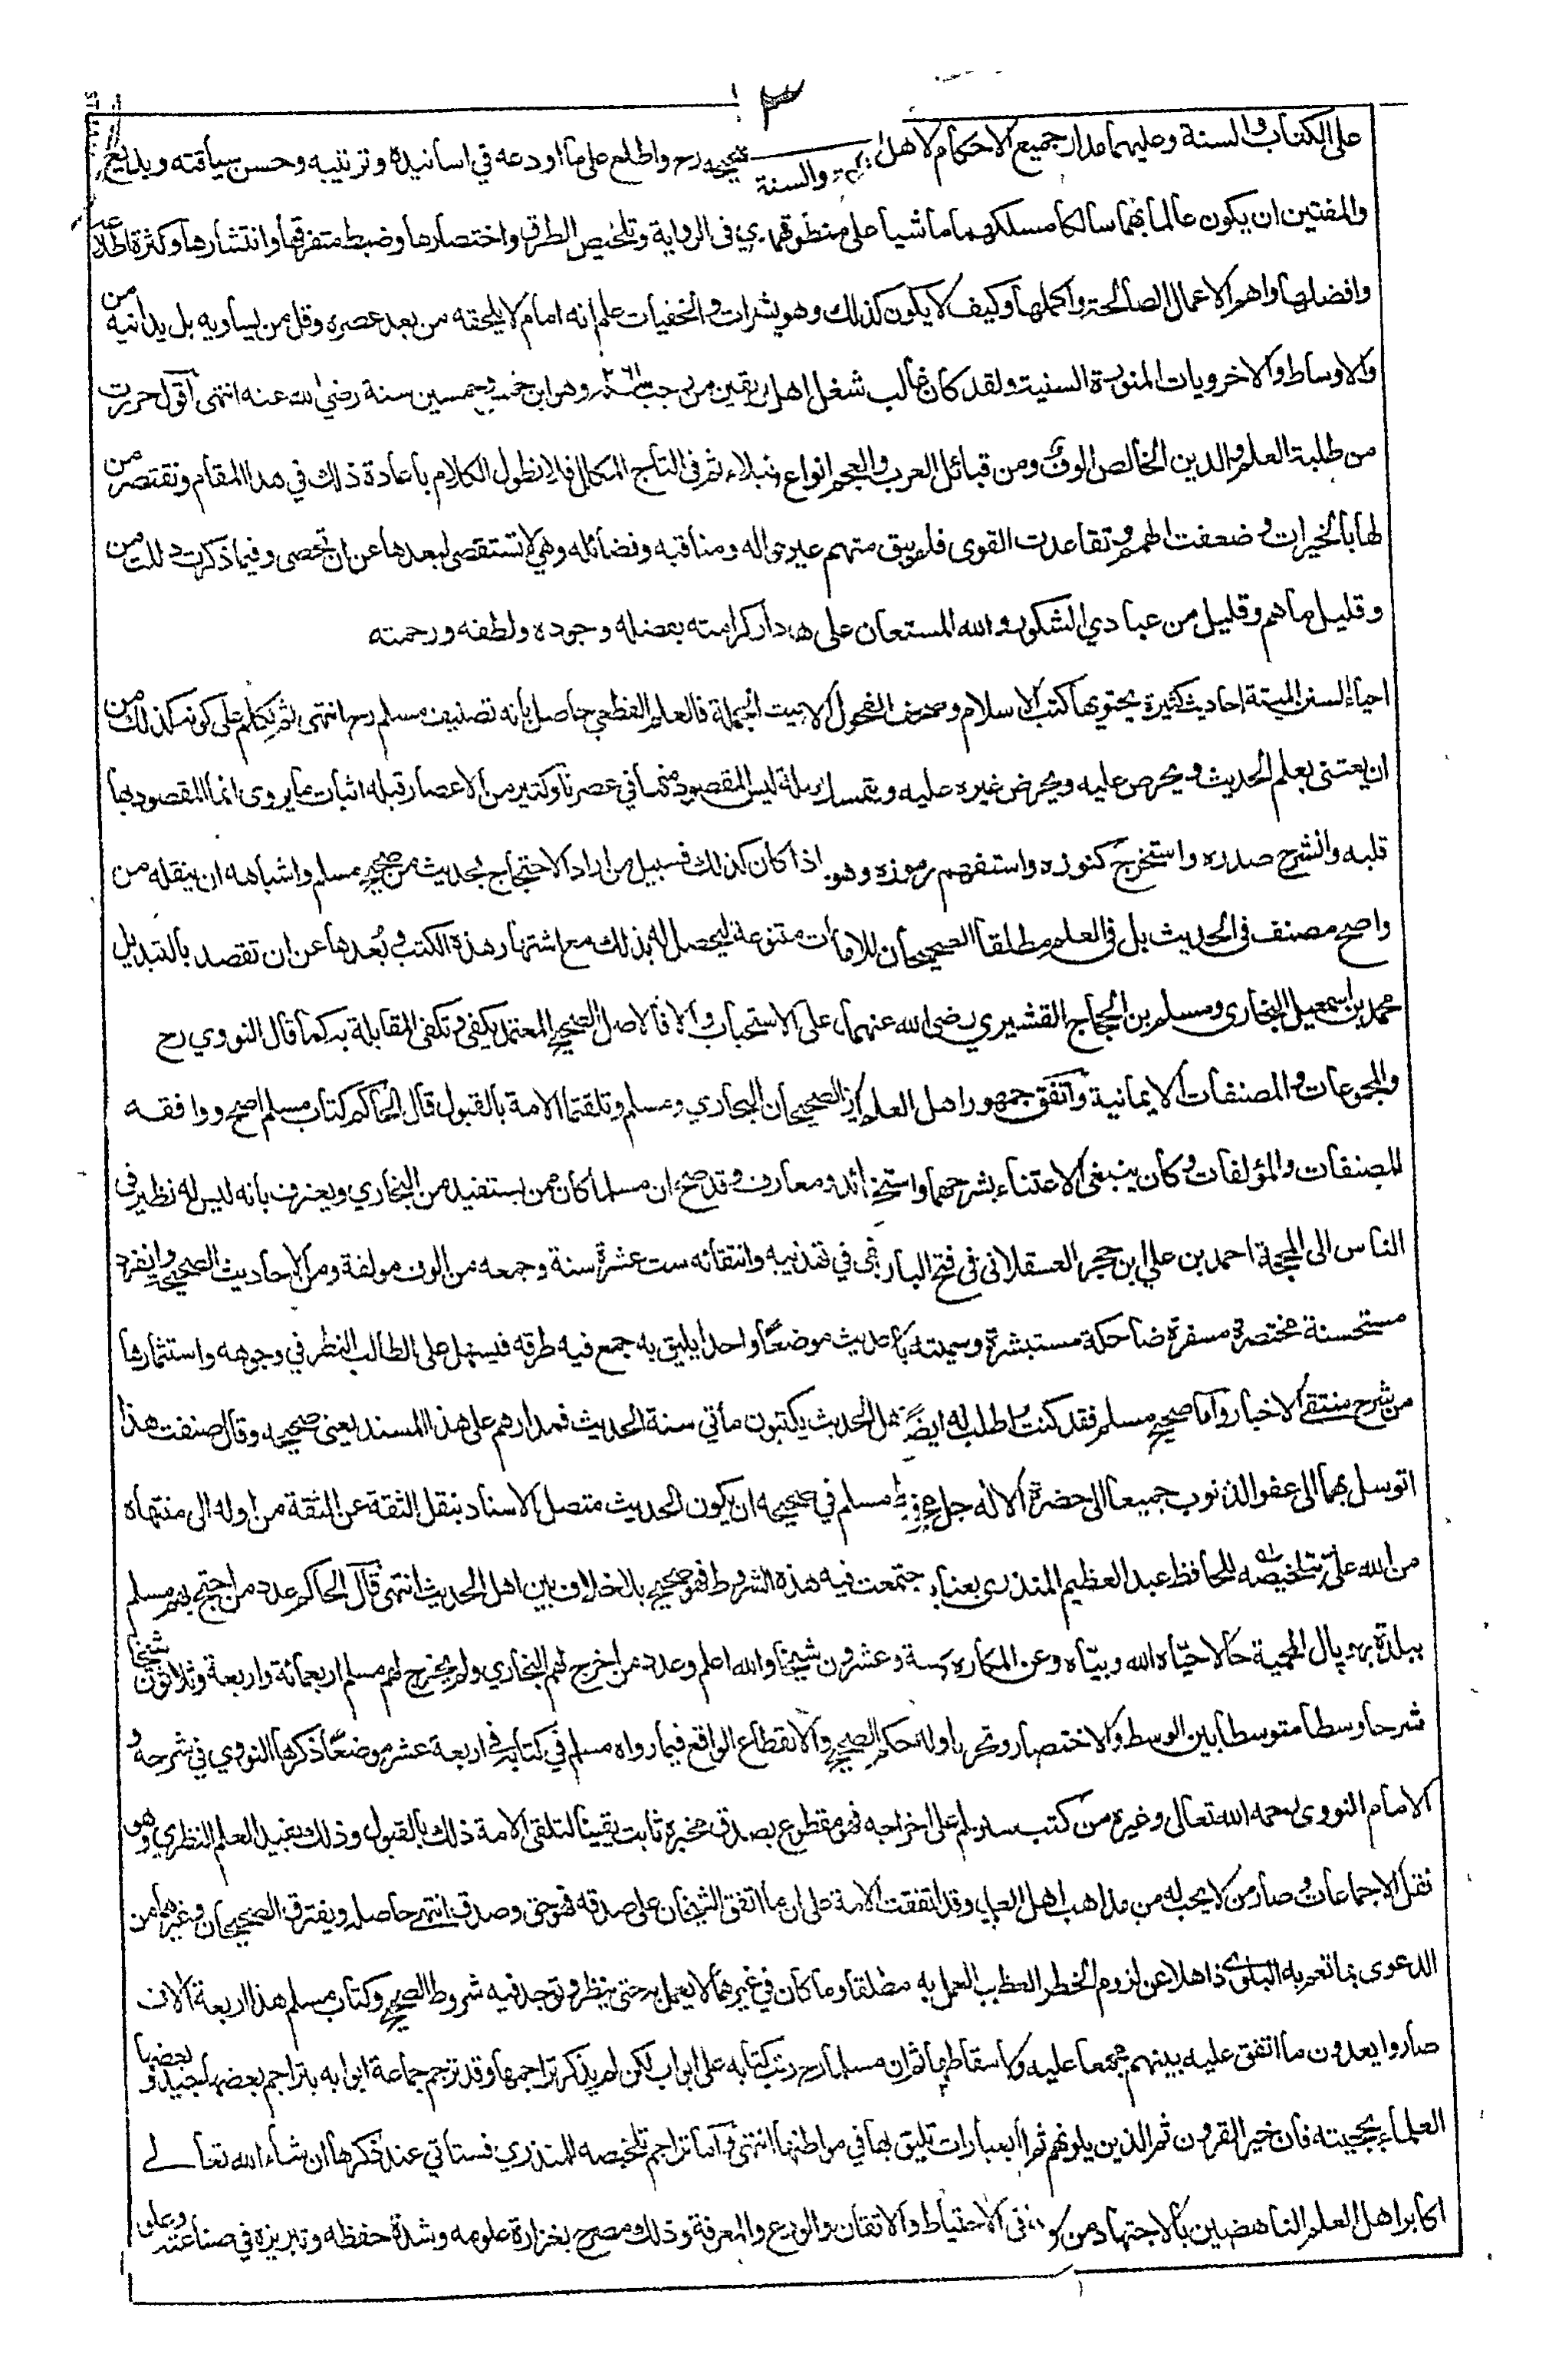 ٣
على الكتاب والسنة وعليهما مدار جميع الاحكام لاهل والسنة رح واطلع على ما اودعه في اسانيده وترتيبه وحسن سياقته وبديع
والمفتين ان يكون عالما بهما سالكا مسلكهما ماشيا على منطوقهما في الرواية وتلخيص الطرق واختصارها وضبط متفرقها وانتشارها وكثرة اطلاع
وافضلها واهم الاعمال الصالحة واكملها وكيف لا يكون كذلك وهو والخفيات علم انه امام لا يلحقه من بعد عصره وقل من يساويه بل يدانيه من
والاوساط والاخرويات المنورة السنية ولقد كان غالب شغل اهل بقين من رجب ٢٦١ وهو ابن خمس وخمسين سنة رضي الله عنه انتهى اقول حررت
من طلبة العلم والدين الخالص الوف ومن قبائل العرب والعجم انواع ثم في التاج المكلل فلا نطول الكلام باعادة ذلك في هذا المقام ونقتصر من
بالخيرات وضعفت الهمم وتقاعدت القوى فلم يبق منهم غير ومناقبه وفضائله وهي لا تستقصى لبعدها عن ان تحصى وفيما ذكرت من
وقليل ما هم وقليل من عبادي الشكور والله المستعان على دار كرامته بفضله وجوده ولطفه ورحمته
احياء السنن الميتة احاديث كثيرة يحتويها كتب الاسلام وصحف الفحول الجملة فالعلم القطعي حاصل بانه تصنيف مسلم رح انتهى ثم تكلم على كونه كذلك من
ان يعتنى بعلم الحديث ويحرص عليه ويحرض غيره عليه ويتمسك ليس المقصود منها في عصرنا وكثير من الاعصار قبله اثبات ما يروى انما المقصود بها
قلبه وانشرح صدره واستخرج كنوزه واستفهم رموزه وهو اذا كان كذلك فسبيل من اراد الاحتجاج بحديث من صحيح مسلم واشباهه ان ينقله من
واصح مصنف في الحديث بل في العلم مطلقا الصحيحان للاما ات متنوعة ليحصل له بذلك مع اشتهار هذه الكتب وبُعدها عن ان تقصد بالتبديل
محمد بن اسمعيل البخاري ومسلم بن الحجاج القشيري رضي الله عنهما على الاستحباب والا فالاصل الصحيح المعتمد يكفي وتكفي المقابلة به كما قال النووي رح
والمجموعات والمصنفات الايمانية واتفق جمهور اهل العلم ان الصحيحان البخاري ومسلم وتلقتهما الامة بالقبول قال الحاكم كتاب مسلم اصح ووافقه
المصنفات والمؤلفات وكان ينبغي الاعتناء بشرحهما ومعارف وقد صح ان مسلما كان ممن يستفيد من البخاري ويعترف بانه ليس له نظير في
الناس الى المحجة احمد بن علي ابن حجر العسقلاني في فتح البار بقي في تهذيبه وانتقائه ست عشرة سنة وجمعه من الوف مولفة ومن الاحاديث الصحيحة وانفرد
مستحسنة مختصرة مسفرة ضاحكة مستبشرة وسميته حديث موضعًا واحدا يليق به جمع فيه طرقه فيسهل على الطالب النظر في وجوهه واستثمارها
من شرح منتقى الاخبار واما صحيح مسلم فقد كنت اطلب له ايضا هل الحديث يكتبون مأتي سنة الحديث فمدارهم على هذا المسند يعني صحيحه وقال صنفت هذا
اتوسل بهما الى عفو الذنوب جميعا الى حضرة الاله جل مسلم في صحيحه ان يكون الحديث متصل الاسناد بنقل الثقة عن الثقة من اوله الى منتهاه
من الله علي بتلخيصه للحافظ عبد العظيم المنذري جتمعت فيه هذه الشروط فهو صحيح بلا خلاف بين اهل الحديث انتهى قال الحاكم عدد من احتج بهم مسلم
ببلدة بهوپال المحمية حالا حيّاه الله وبيّاه وعن المكاره سة وعشرون شيخا والله اعلم وعدد من اخرج لهم البخاري ولم يخرج لهم مسلم اربعمائة واربعة وثلاثون شيخا
شرحا وسطا متوسطا بين الوسط والاختصار الصحيح والانقطاع الواقع فيما رواه مسلم في كتابه في اربعة عشر موضعًا ذكرها النووي في شرحه و
الامام النووي رحمه الله تعالى وغيره من كتب على اخراجه فهو مقطوع بصدق مخبره ثابت يقينا لتلقي الامة ذلك بالقبول وذلك يفيد العلم النظري وهو
نقل الاجماعات وصار من لا يحب له من مذاهب اهل وقد اتفقت الامة على ان ما اتفق الشيخان على صدقه فهو حق وصدق انتهى حاصله ويفترق الصحيحان وغيرهما من
الدعوى بما تعم به البلوى ذاهلا عن لزوم الخطر العمل به مطلقا وما كان في غيرهما لا يعمل به حتى ينظر وتوجد فيه شروط الصحيح وكتاب مسلم هذا اربعة الاف
صاروا يعدون ما اتفق عليه بينهم مجمعا عليه ولا ثم ان مسلما رح رتب كتابه على ابواب لكن لم يذكر تراجمها وقد ترجم جماعة ابوابه بتراجم بعضها جيد و بعضها
العلماء بحجيته فان خير القرون ثم الذين يلونهم ثم بعبارات تليق بها في مواطنها انتهى واما تراجم تلخيصه للمنذري فستاتي عند ذكرها ان شاء الله تعالى
اكابر اهل العلم الناهضين بالاجتهاد من في الاحتياط والاتقان والورع والمعرفة وذلك مصرح بغزارة علومه وشدة حفظه وتبريزه في صناعته وعلو